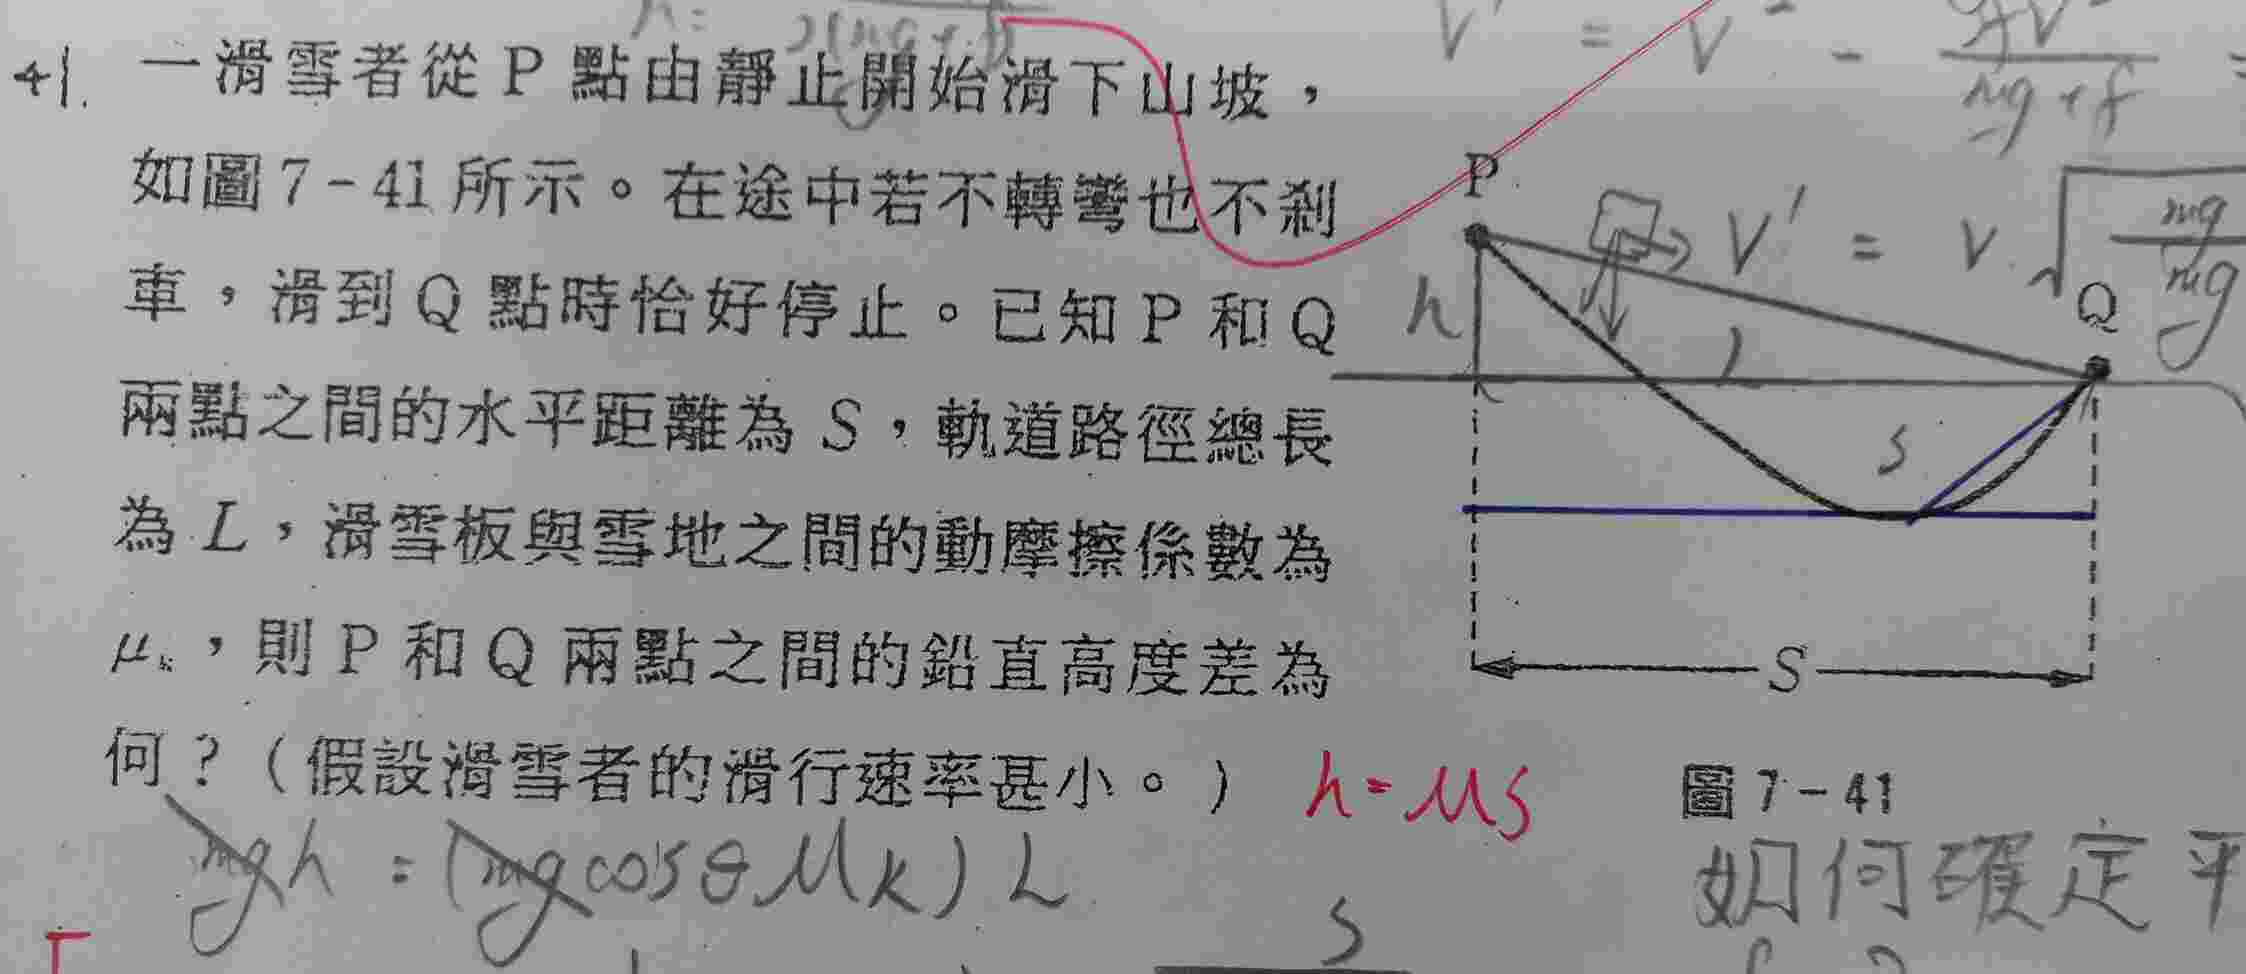 41. 一滑雪者從 P 點由靜止開始滑下山坡，
如圖 7-41 所示。在途中若不轉彎也不剎
車，滑到 Q 點時恰好停止。已知 P 和 Q
兩點之間的水平距離為 S，軌道路徑總長
為 L，滑雪板與雪地之間的動摩擦係數為
μk，則 P 和 Q 兩點之間的鉛直高度差為
何？（假設滑雪者的滑行速率甚小。）
h = μS
mgh = (mg cosθ μk) L
S
P
h
V' = V √ mg
Q
L
S
S
圖 7-41
如何確定平